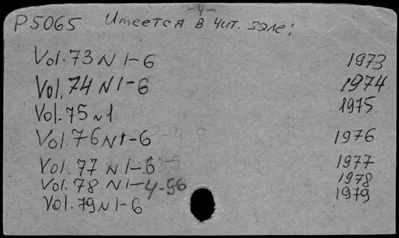 -4-
P5065 Имеется в чит. зале:
Vol. 73 N 1-6 1973
Vol. 74 N 1-6 1974
Vol. 75 N 1 1975
Vol. 76 N 1-6 1976
Vol. 77 N 1-6 1977
Vol. 78 N 1-4,5-6 1978
Vol. 79 N 1-6 1979